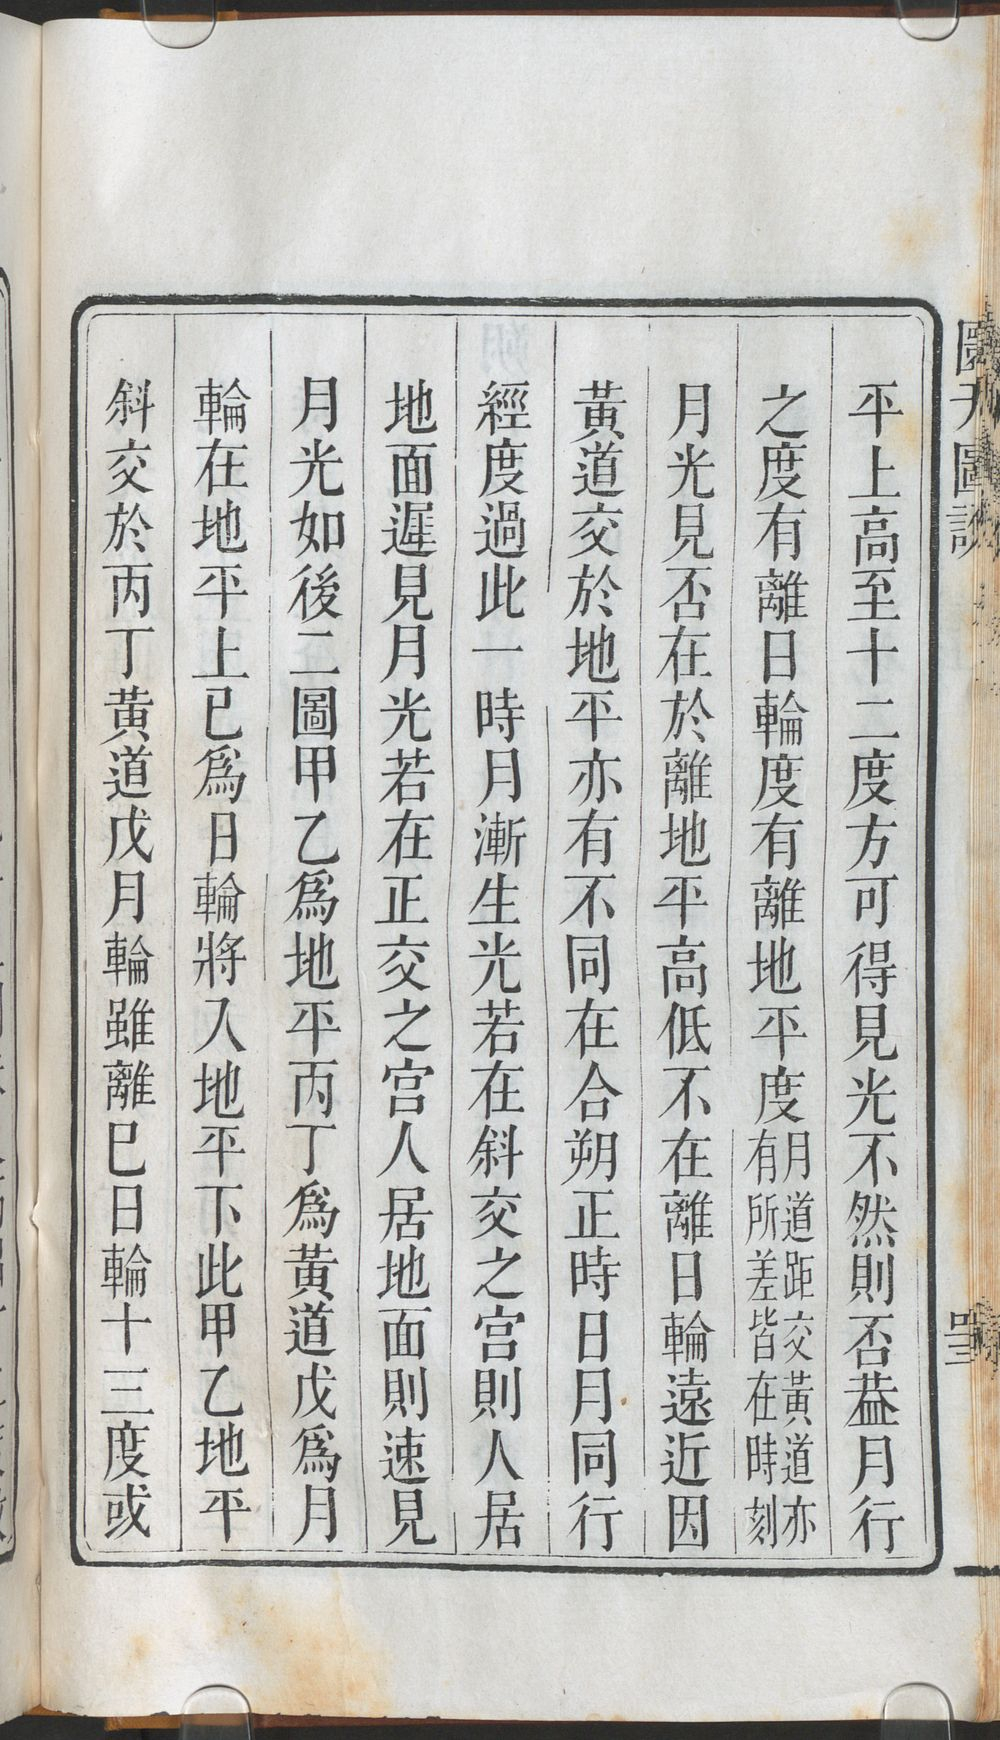 平上高至十二度方可得見光不然則否葢月行
之度有離日輪度有離地平度月道距交黃道亦有所差皆在時刻
月光見否在於離地平高低不在離日輪遠近因
黃道交於地平亦有不同在合朔正時日月同行
經度過此一時月漸生光若在斜交之宮則人居
地面遲見月光若在正交之宮人居地面則速見
月光如後二圖甲乙為地平丙丁為黃道戊為月
輪在地平上巳為日輪將入地平下此甲乙地平
斜交於丙丁黃道戊月輪雖離巳日輪十三度或